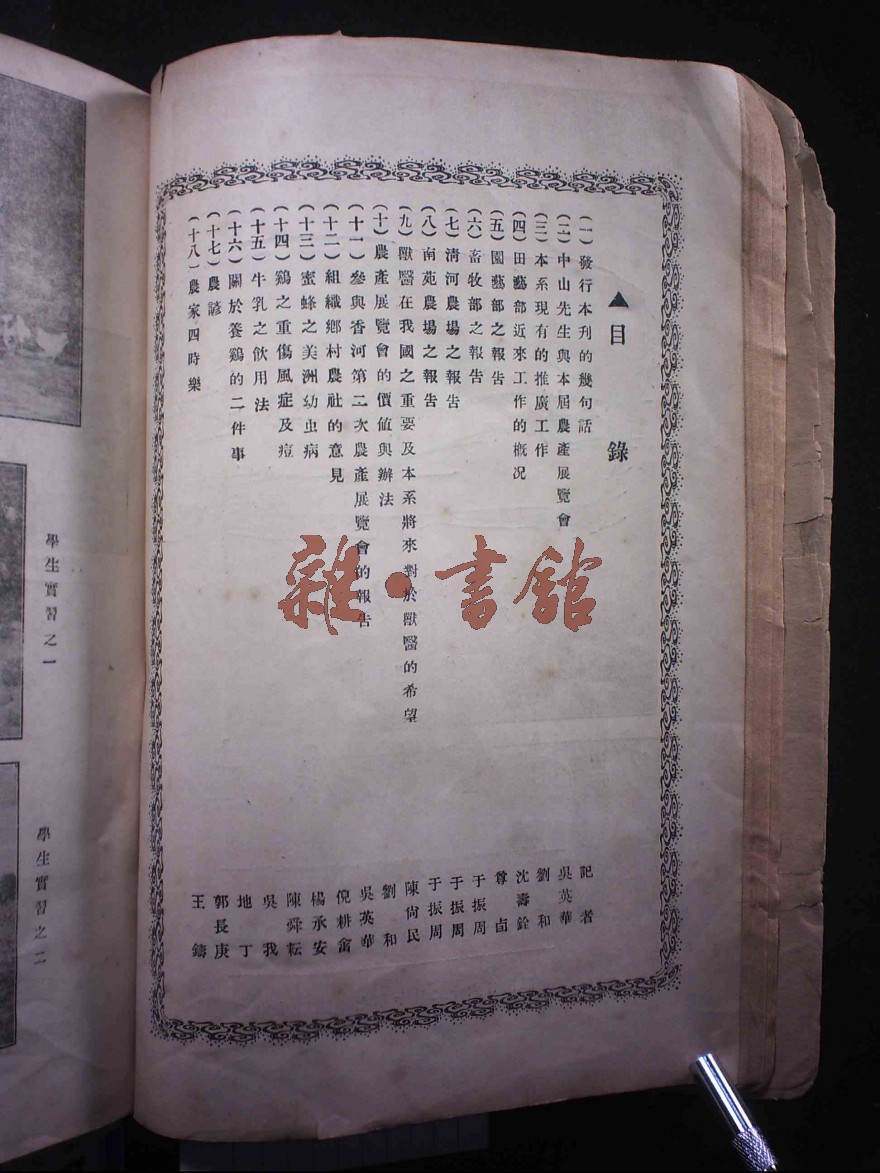 ▲目錄
(一)發行本刊的幾句話 記者
(二)中山先生與本屆農產展覽會 吳英華
(三)本系現有的推廣工作 劉和
(四)田藝部近來工作的概況 沈壽銓
(五)園藝部之報告 尊卣
(六)畜牧部之報告 于振周
(七)清河農場之報告 于振周
(八)南苑農場之報告 于振周
(九)獸醫在我國之重要及本系將來對於獸醫的希望 陳尚民
(十)農產展覽會的價值與辦法 劉和
(十一)參與香河第二次農產展覽會的報告 吳英華
(十二)組織鄉村農社的意見 倪耕畬
(十三)蜜蜂之美洲幼虫病 楊承安
(十四)鷄之重傷風症及痘 陳舜耘
(十五)牛乳之飲用法 吳我
(十六)關於養鷄的二件事 地丁
(十七)農諺 郭長庚
(十八)農家四時樂 王鑄
學生實習之一
學生實習之二
雜·書館